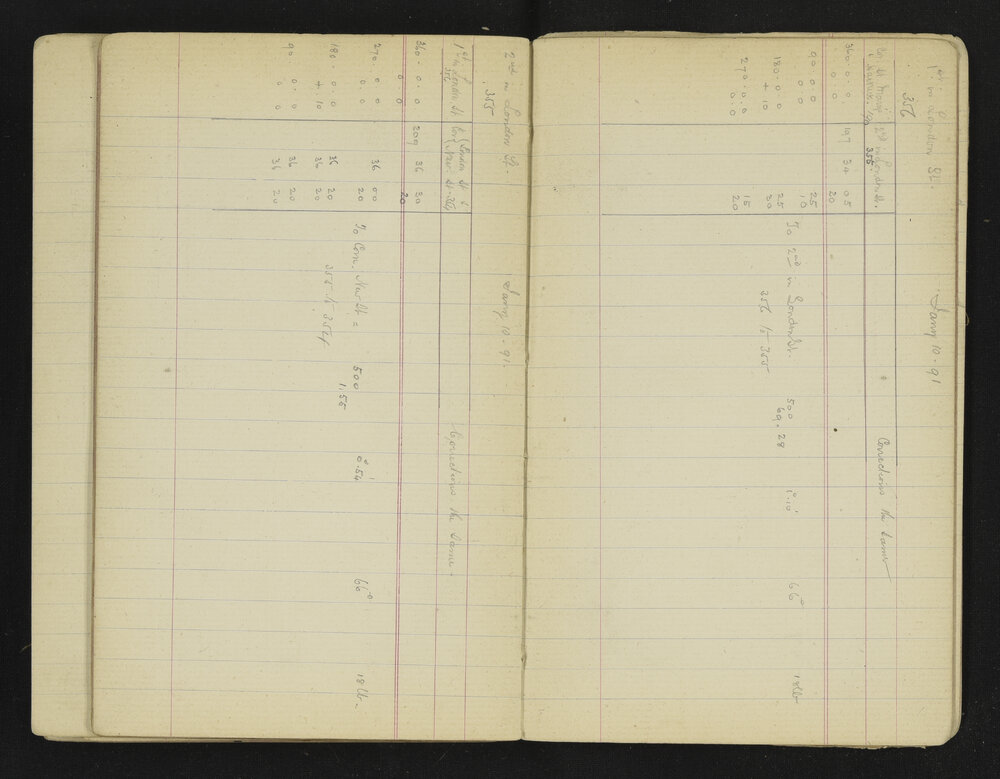 1st in London St. Jany 10 - 91
356
2nd in London St.
356
Corrections the same
360 . 0 . 0 197 34 05
0 0 20
90 0 0 25
0 . 0 10
180 . 0 0 25
+ 10 30
270 . 0 . 0 15
0 . 0 20
To 2nd in London St. 500 0°.10' 66° 18 lb
356 to 355 69.28
2nd in London St. Jany 10 - 91.
355
1st in London St
356
Corrections the same.
360 . 0 . 0 209 36 30
0 0 20
270 . 0 0 36 00
0 . 0 20
180 . 0 . 0 36 20
+ 10 36 20
90 . 0 0 36 20
0 0 36 20
To Corn. Nav. St = 500 0°.54' 66° 18 lb
355 to 354 1.55